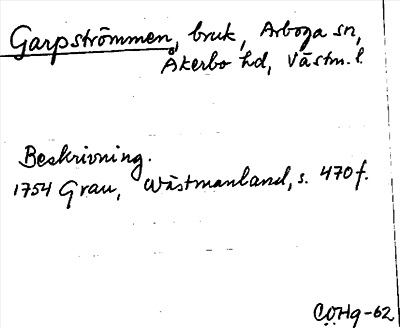 Garpströmmen, bruk, Arboga sn,
Åkerbo hd, Västm. l.
Beskrivning.
1754 Grau, Wästmanland, s. 470 f.
COHg-62